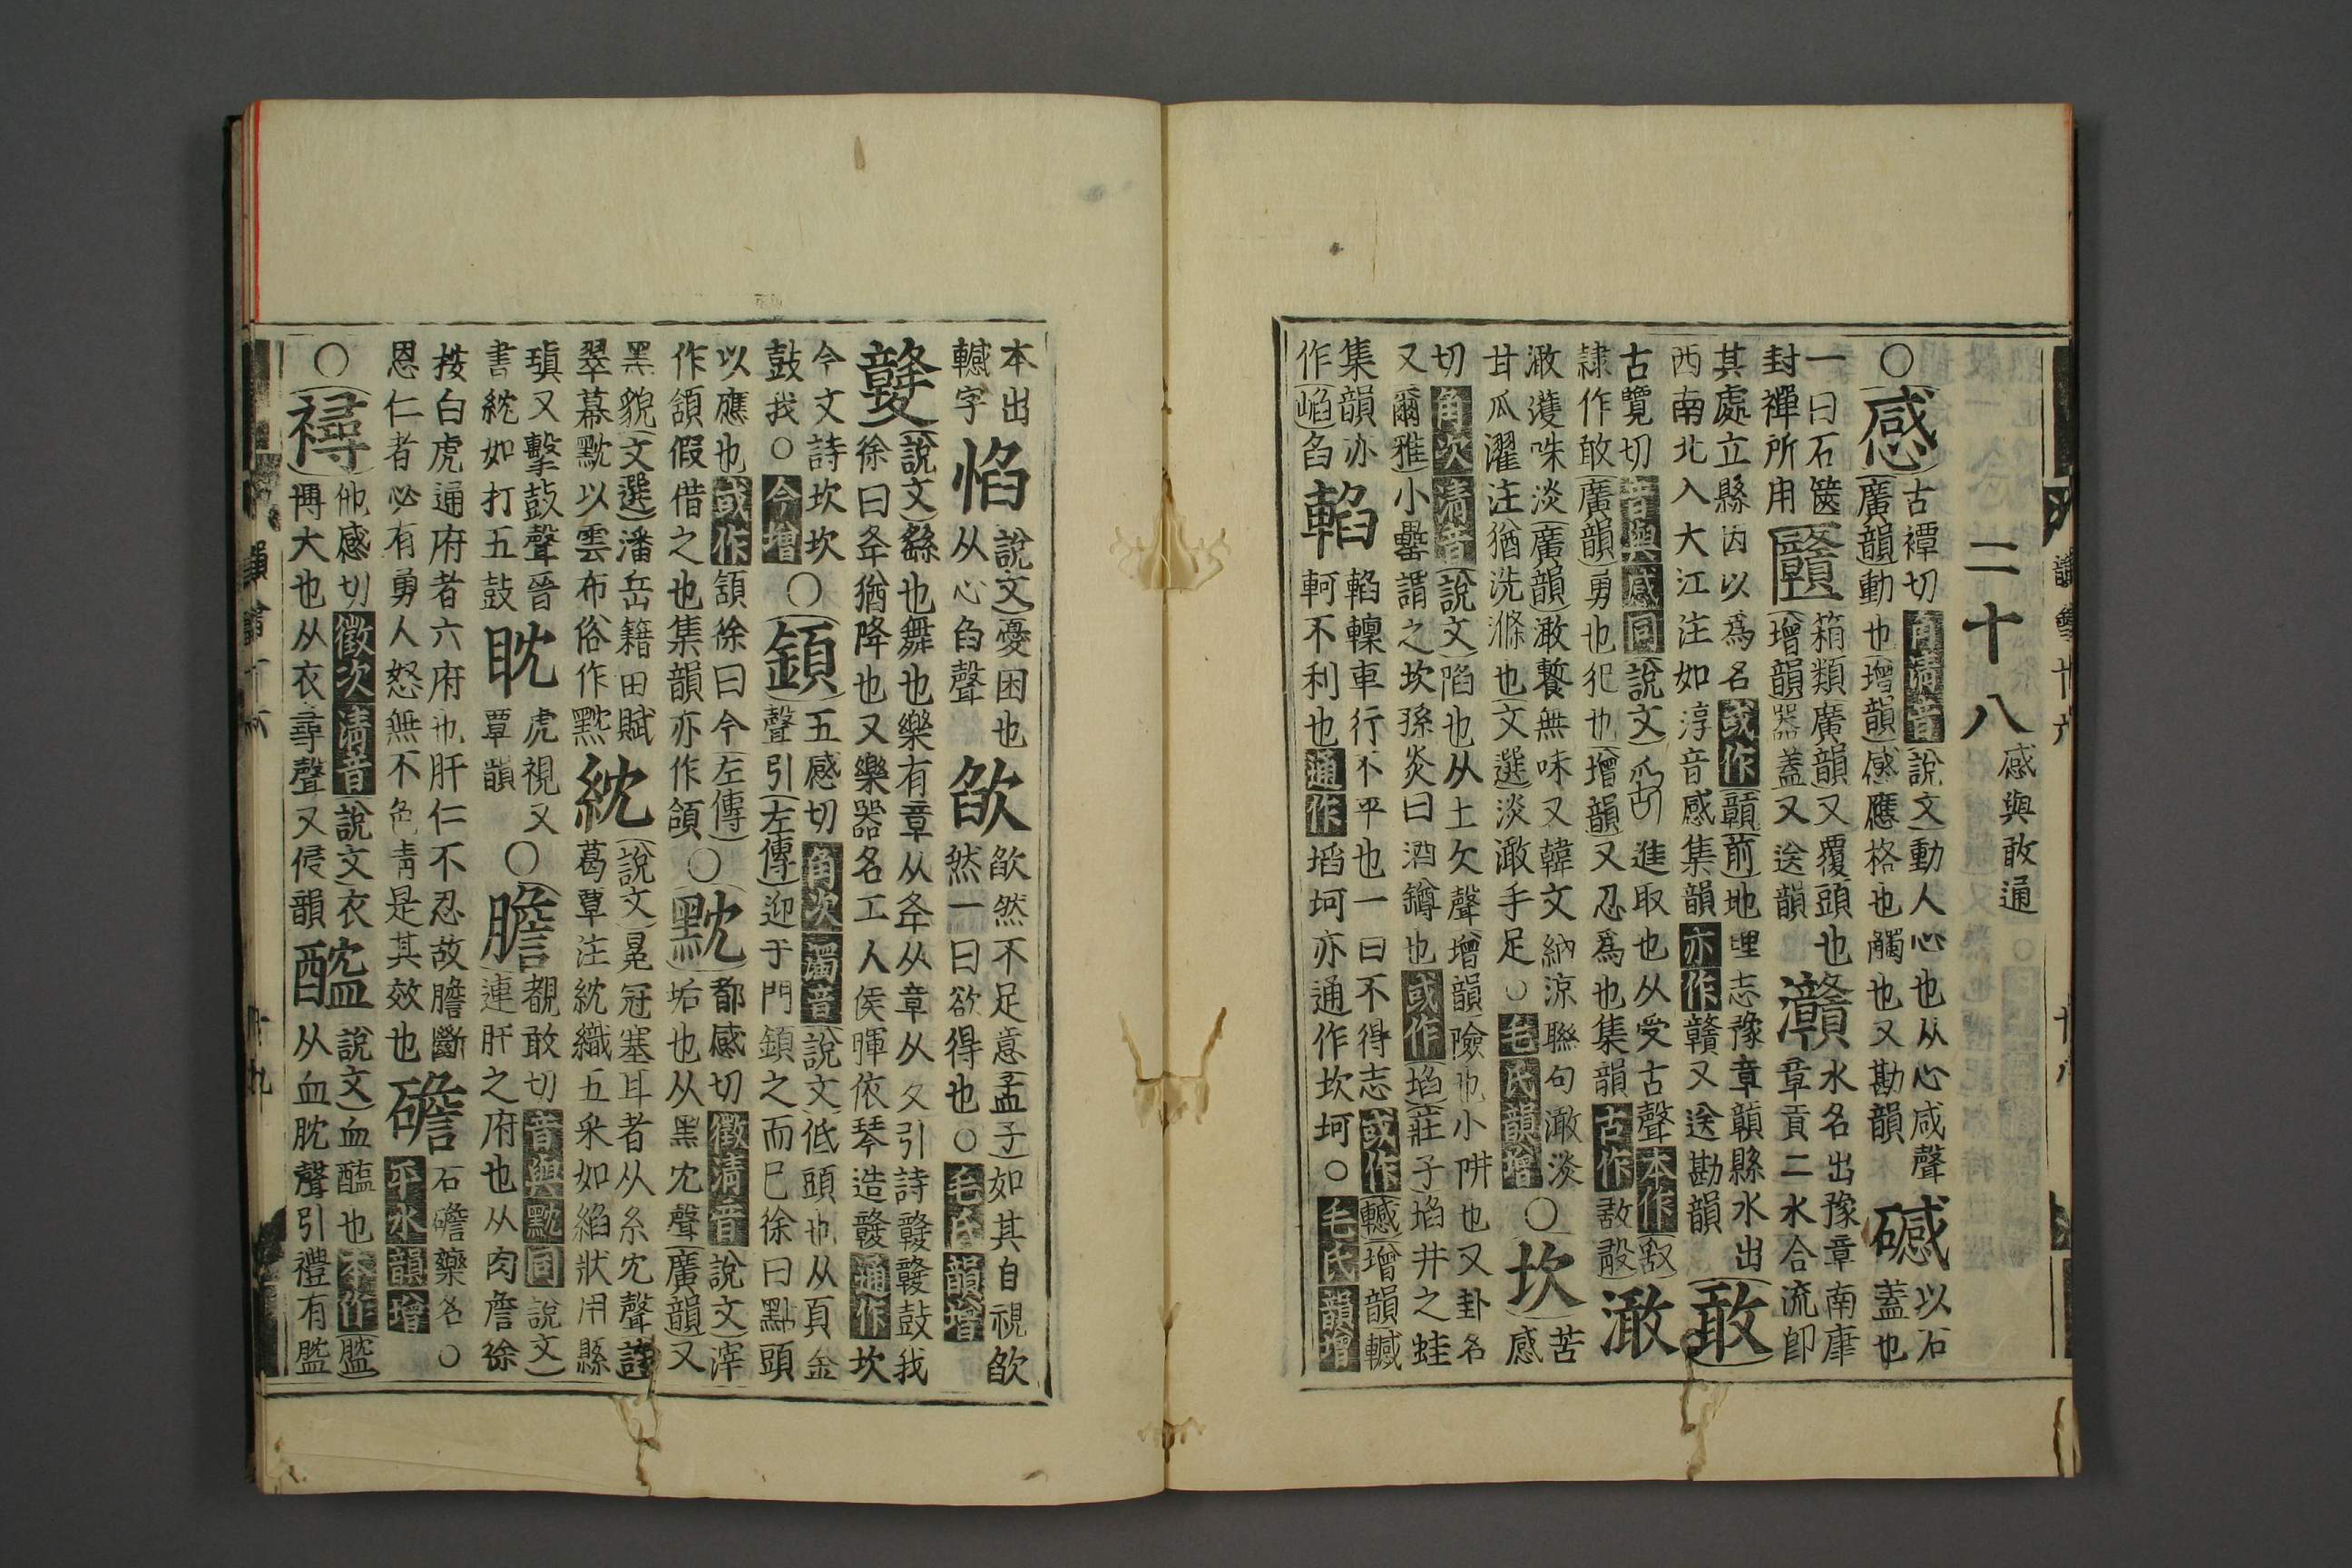 二十八 感與敢通
○感 古禫切角清音說文動人心也从心咸聲
廣韻動也增韻感應格也觸也又勘韻 㽉 以石蓋也
一曰石篋封禪所用 箱類廣韻又覆頭也增韻器蓋又送韻 灨 水名出豫章南康章貢二水合流卽
其處立縣因以爲名或作贑前地理志豫章贑縣水出
西南北入大江注如淳音感集韻亦作贛又送勘韻 敢
古覽切音與感同說文進取也从受古聲本作𣪏
隷作敢廣韻勇也犯也增韻又忍爲也集韻古作 澉
澉濩味淡廣韻澉𩞄無味又韓文納涼聯句澉淡
甘瓜濯注猶洗滌也文選淡澉手足○毛氏韻增 ○坎 苦感
切角次清音說文陷也从土欠聲增韻險也小阱也又卦名
又爾雅小罍謂之坎孫炎曰酒罇也或作埳莊子埳井之蛙
集韻亦作㟅臽 轗 轗䡪車行不平也一曰不得志或作轗增韻轗
軻不利也通作埳坷亦通作坎坷○毛氏韻增
本出轗字 惂 說文憂困也从心臽聲 欿 欿然不足意孟子如其自視欿
然一曰欲得也○毛氏韻增
竷 說文繇也舞也樂有章从夅从章从夂引詩竷竷鼓我
徐曰夅猶降也又樂器名工人侯暉依琴造竷通作坎
今文詩坎坎鼓我○今增 ○顉 五感切角次濁音說文低頭也从頁金
聲引左傳迎于門顉之而已徐曰點頭
以應也或作頷徐曰今左傳
作頷假借之也集韻亦作頜 ○黕 都感切徵清音說文滓
垢也从黑冘聲廣韻又
黑貌文選潘岳籍田賦
翠幕黕以雲布俗作黕 紞 說文冕冠塞耳者从糸冘聲詩
葛覃注紞織五采如縚狀用縣
瑱又擊鼓聲晉
書紞如打五鼓 眈 虎視又覃韻 ○膽 覩敢切音與黕同說文
連肝之府也从肉詹徐
按白虎通府者六府也肝仁不忍故膽斷
恩仁者必有勇人怒無不色靑是其效也 礛 石礛藥名○平水韻增
○襑 他感切徵次清音說文衣
博大也从衣尋聲又侵韻 醓 說文血醢也本作䀋
从血肬聲引禮有䀋